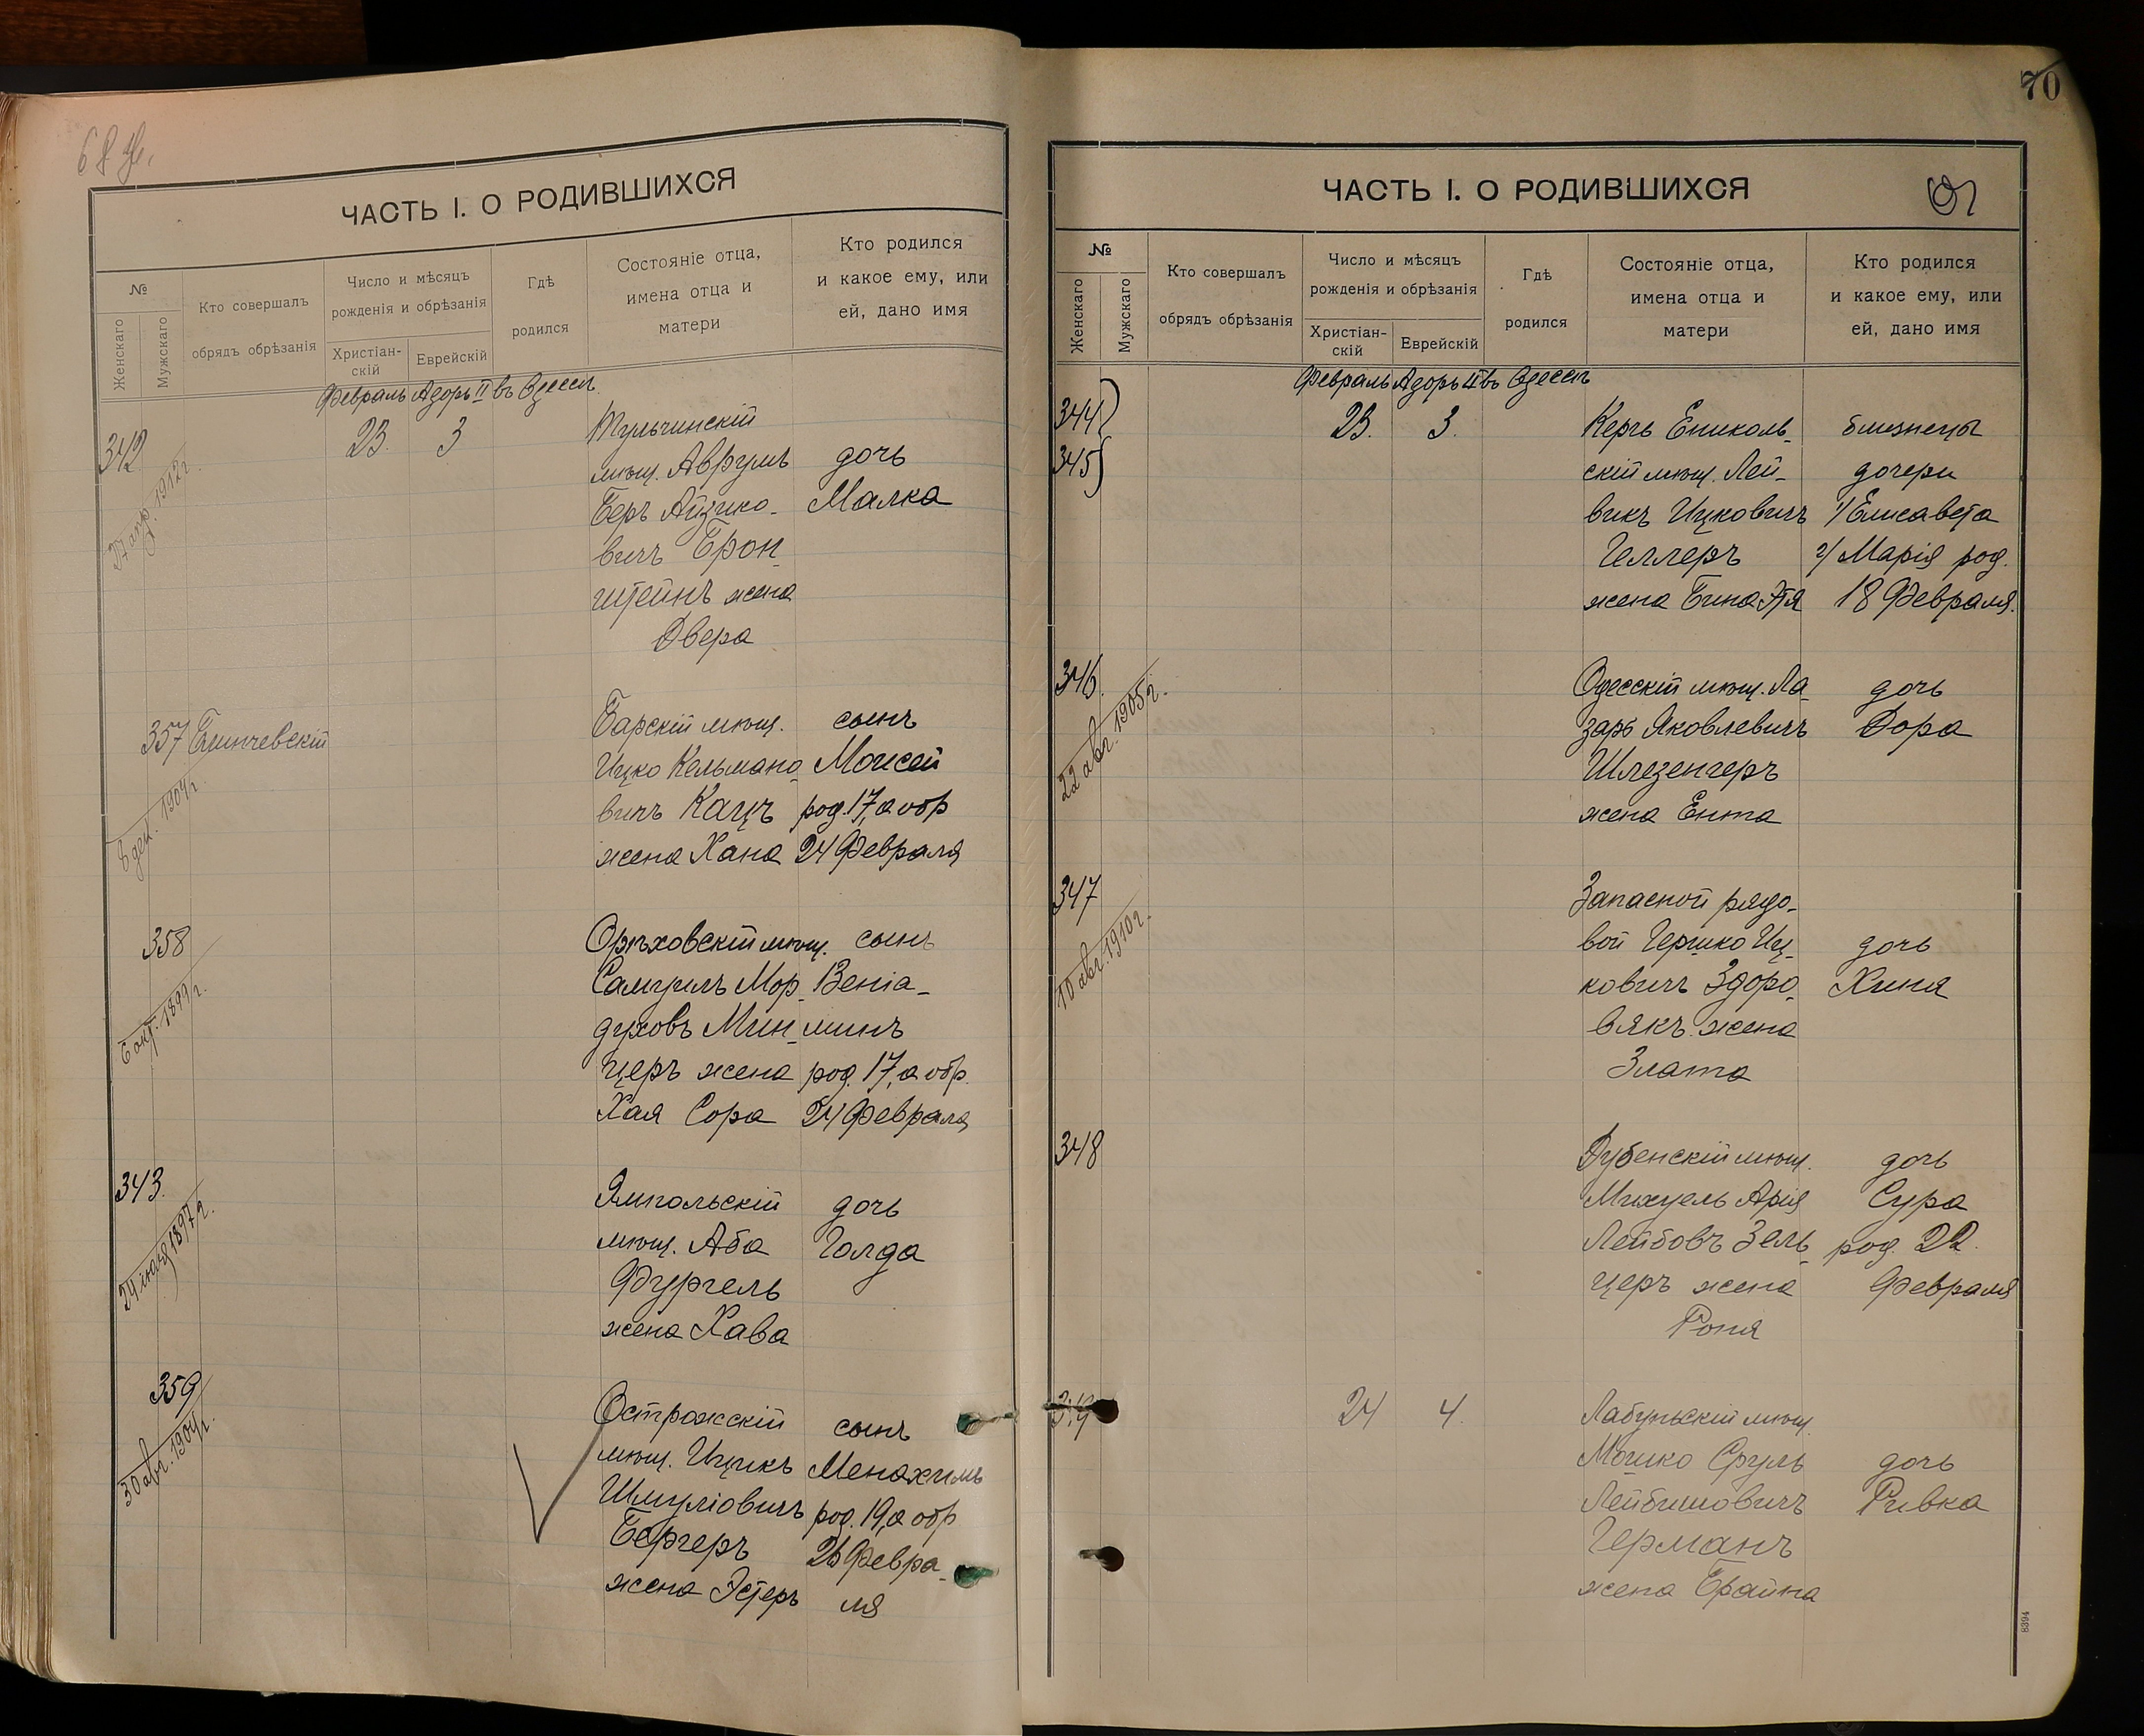 68
ЧАСТЬ I. О РОДИВШИХСЯ
№
Женскаго
Мужскаго
Кто совершалъ
обрядъ обрѣзанія
Число и мѣсяцъ
рожденія и обрѣзанія
Христіан-
скій
Еврейскій
Гдѣ
родился
Состояніе отца,
имена отца и
матери
Кто родился
и какое ему, или
ей, дано имя
Февраль Адаръ II въ Одессѣ
342
27 апр. 1912 г.
23.
3
Тульчинскій
мѣщ. Аврумъ
Беръ Айзико-
вичъ Брон-
штейнъ жена
Двера
дочь
Малка
357
Блинчевскій
8 дек. 1904 г.
Барскій мѣщ.
Ицко Кельмано-
вичъ Кацъ
жена Хана
сынъ
Моисей
род. 17, а обр
24 Февраля
358
6 окт. 1899 г.
Орѣховскій мѣщ.
Самуилъ Мор-
духовъ Мин-
церъ жена
Хая Сора
сынъ
Веніа-
минъ
род. 17, а обр.
24 Февраля
343.
24 1897 г.
Ямпольскій
мѣщ. Аба
Фургель
жена Хава
дочь
Голда
359
30 авг. 1904 г.
Острожскій
мѣщ. Ицикъ
Шмуліовичъ
Бергеръ
жена Эстеръ
сынъ
Менахимъ
род. 19, а обр
26 Февра-
ля
70
ЧАСТЬ I. О РОДИВШИХСЯ
№
Женскаго
Мужскаго
Кто совершалъ
обрядъ обрѣзанія
Число и мѣсяцъ
рожденія и обрѣзанія
Христіан-
скій
Еврейскій
Гдѣ
родился
Состояніе отца,
имена отца и
матери
Кто родился
и какое ему, или
ей, дано имя
Февраль Адаръ II въ Одессѣ
344
345
23.
3.
Керчь Ениколь-
скій мѣщ. Лей-
викъ Ицковичъ
Геллеръ
жена Бина Этя
близнецы
дочери
1/ Елисавета
2/ Марія род.
18 Февраля.
346.
22 авг. 1905 г.
Одесскій мѣщ. Ла-
заръ Яковлевичъ
Шлезенгеръ
жена Ента
дочь
Дора
347
10 авг. 1910 г.
Запасной рядо-
вой Гершко Иц-
ковичъ Здоро-
вякъ жена
Злата
дочь
Хиня
348
Дубенскій мѣщ.
Михуель Арія
Лейбовъ Зель-
церъ жена
Роня
дочь
Сура
род. 22.
Февраля
349
24
4.
Лабуньскій мѣщ.
Мошко Сруль
Лейбишовичъ
Германъ
жена Брайна
дочь
Ривка
8394